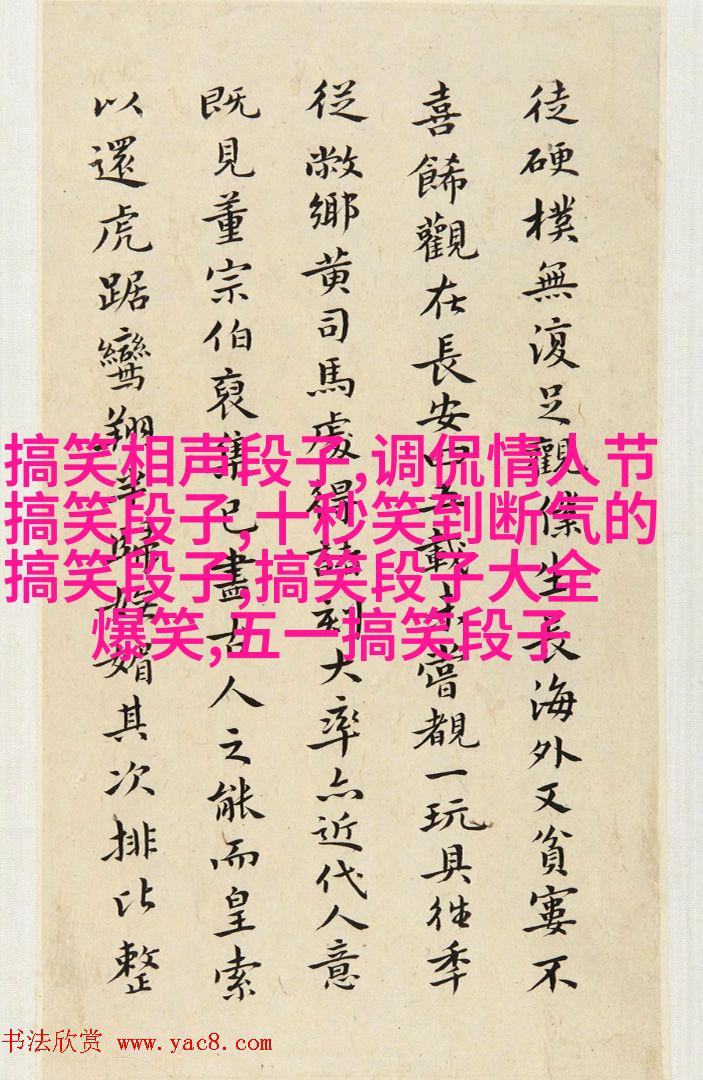 徒硬樸無復足觀僕生長海外又貧窶不
喜餙觀在長安中五載嘗覩一玩具往季
從敝鄉黄司馬處得刻大率亦近代人意
既見董宗伯裒集已盡古人之能而皇索
以還虎踞鸞翔並歸媚其次排比整
搞笑相声段子,调侃情人节
搞笑段子,十秒笑到断气的
搞笑段子,搞笑段子大全
爆笑,五一搞笑段子
书法欣赏 www.yac8.com